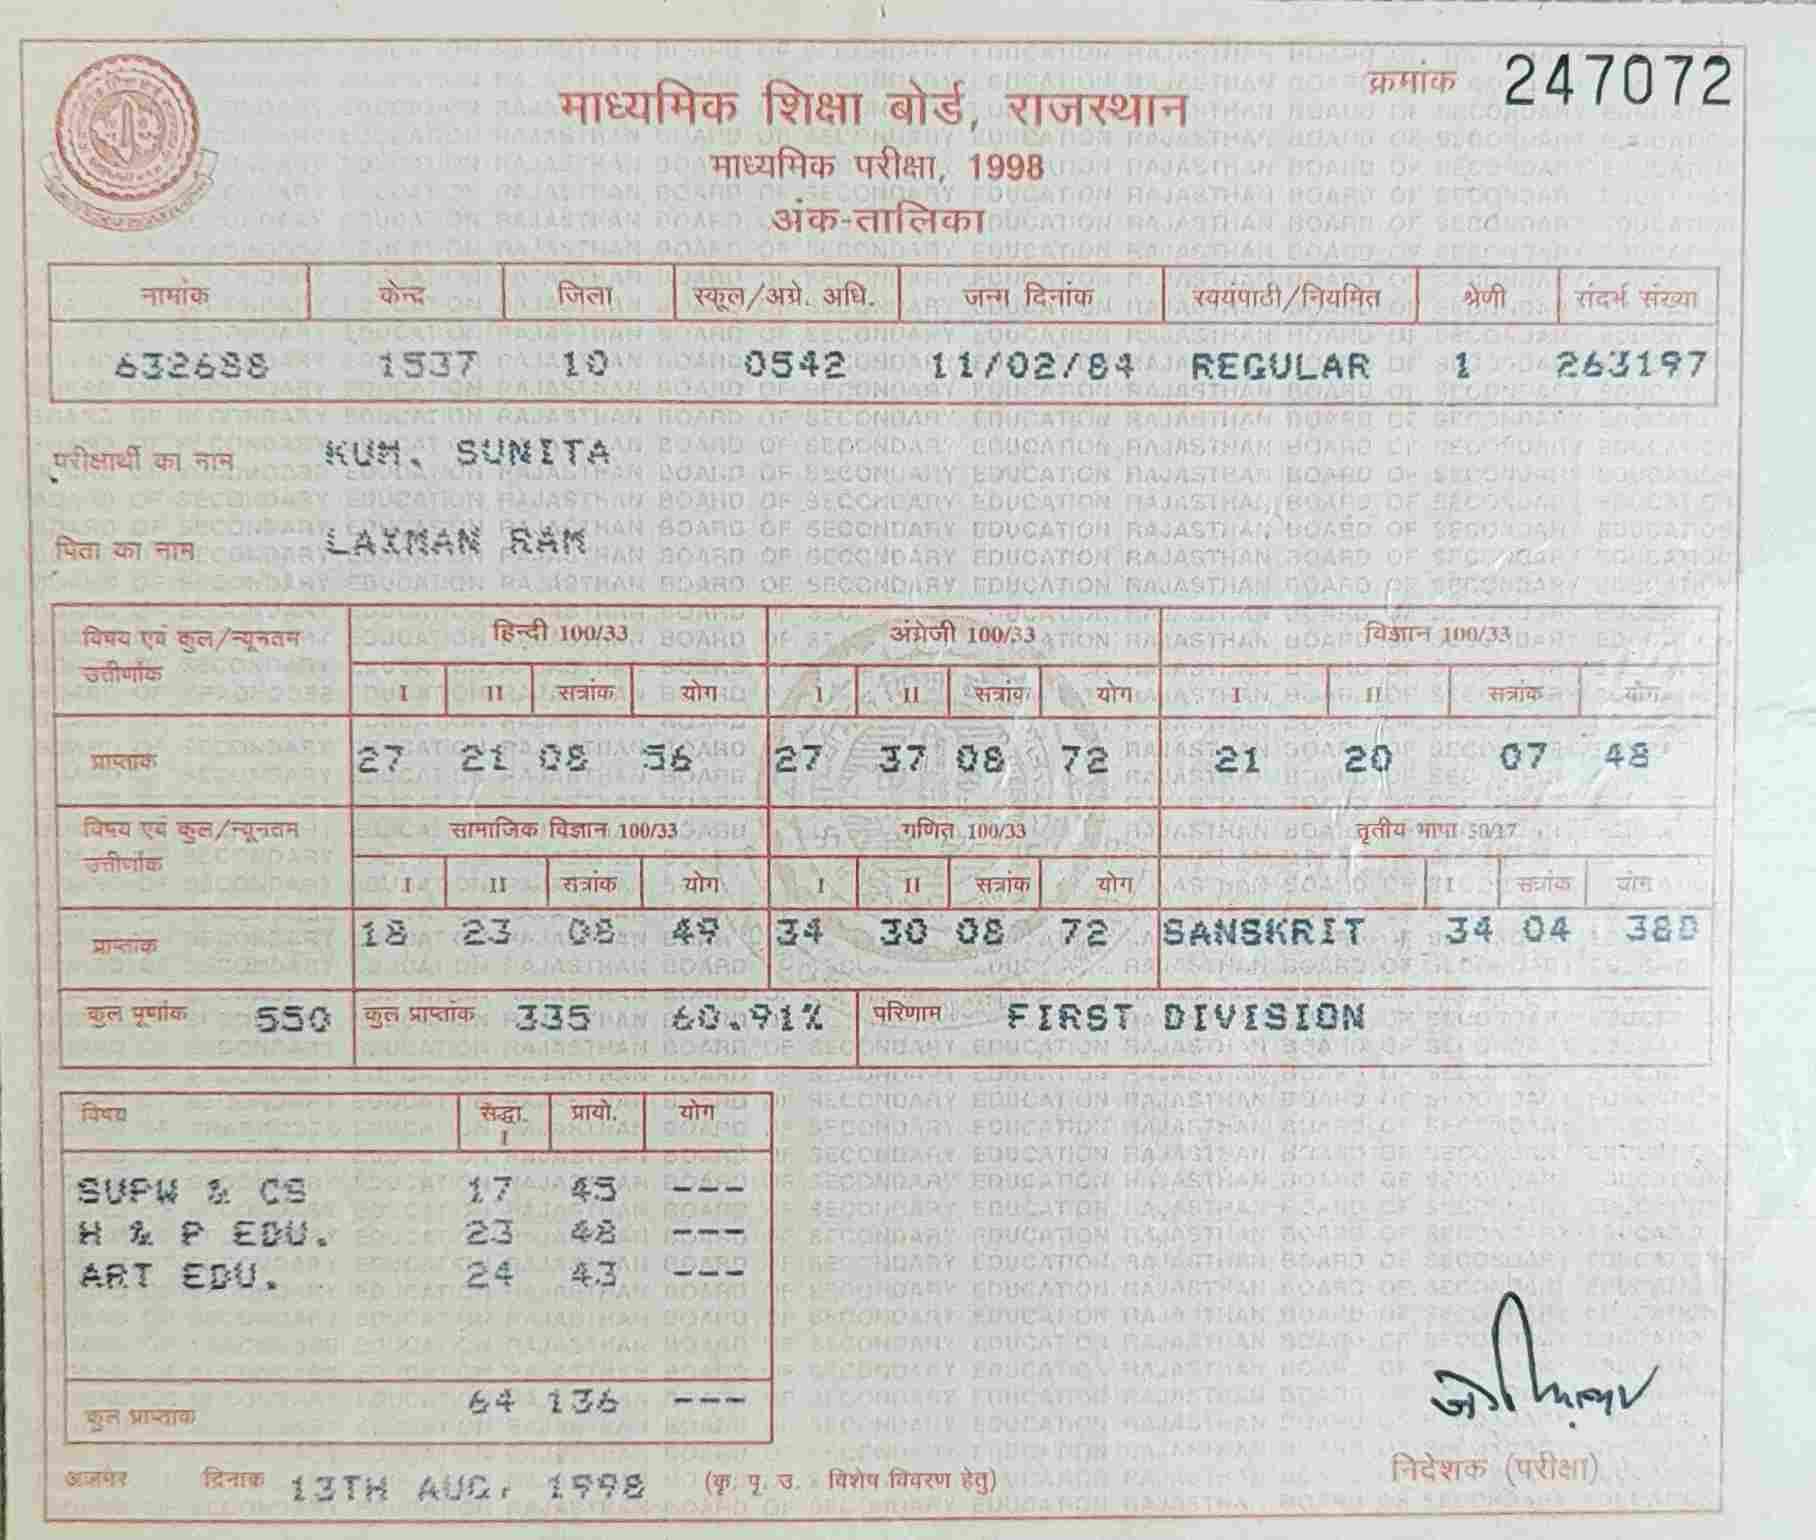 क्रमांक 247072
माध्यमिक शिक्षा बोर्ड, राजस्थान
माध्यमिक परीक्षा, 1998
अंक-तालिका
नामांक केन्द्र जिला स्कूल/अग्रे. अधि. जन्म दिनांक स्वयंपाठी/नियमित श्रेणी संदर्भ संख्या
632688 1537 10 0542 11/02/84 REGULAR 1 263197
परीक्षार्थी का नाम KUM. SUNITA
पिता का नाम LAXMAN RAM
विषय एवं कुल/न्यूनतम हिन्दी 100/33 अंग्रेजी 100/33 विज्ञान 100/33
उत्तीर्णांक I II सत्रांक योग I II सत्रांक योग I II सत्रांक योग
प्राप्तांक 27 21 08 56 27 37 08 72 21 20 07 48
विषय एवं कुल/न्यूनतम सामाजिक विज्ञान 100/33 गणित 100/33 तृतीय भाषा 50/17
उत्तीर्णांक I II सत्रांक योग I II सत्रांक योग I सत्रांक योग
प्राप्तांक 18 23 08 49 34 30 08 72 SANSKRIT 34 04 38D
कुल पूर्णांक 550 कुल प्राप्तांक 335 60.91% परिणाम FIRST DIVISION
विषय सैद्धा. प्रायो. योग
I
SUPW & CS 17 45 ---
H & P EDU. 23 48 ---
ART EDU. 24 43 ---
कुल प्राप्तांक 64 136 ---
निदेशक (परीक्षा)
अजमेर दिनांक 13TH AUG, 1998 (कृ. पृ. उ. - विशेष विवरण हेतु)